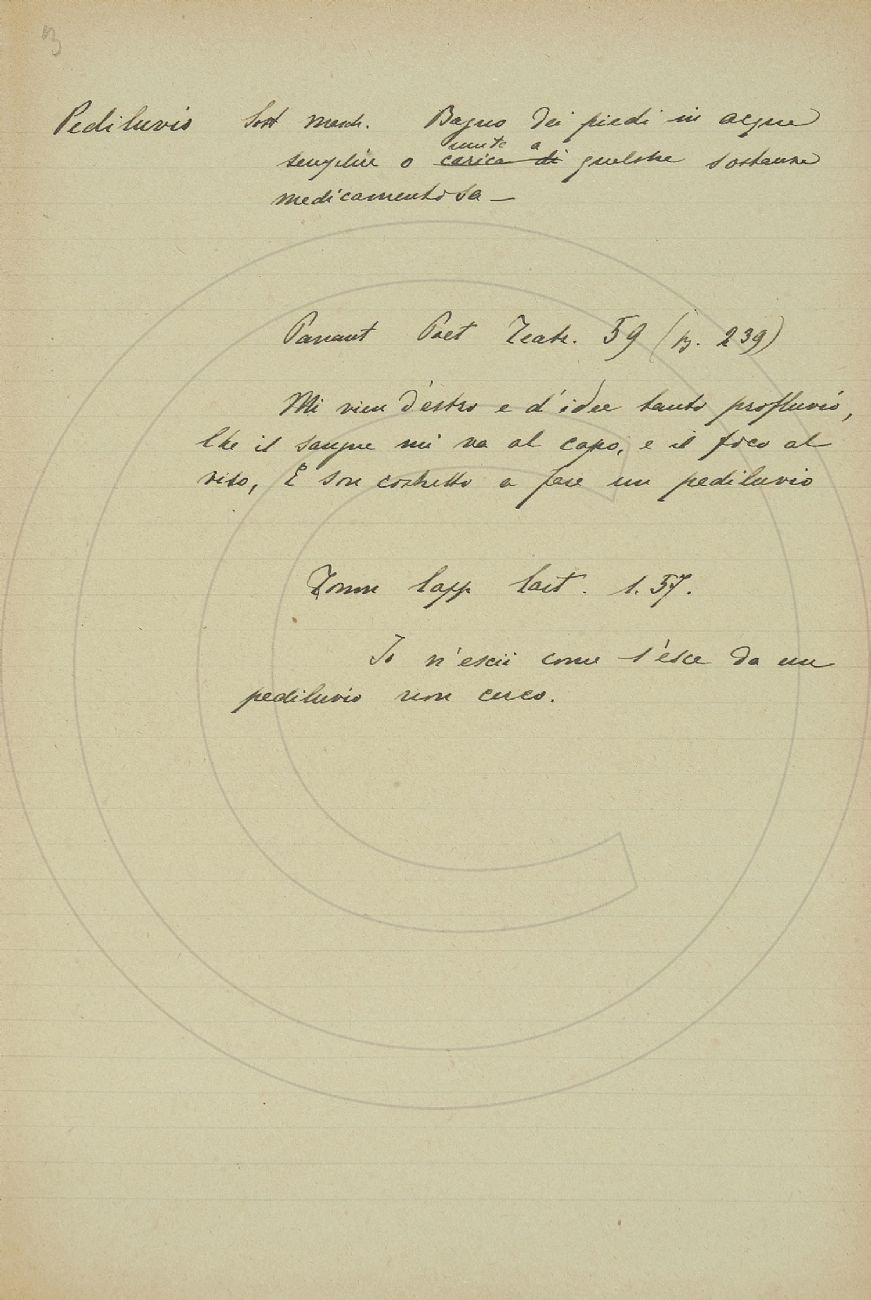 Pediluvio Sost masch. Bagno dei piedi in acqua
semplice o carica di unita a qualche sostanza
medicamentosa —
Pananti Poet Teatr. 59 (p. 239)
Mi vien d'estro e d'idee tanto profluvio,
Che il sangue mi va al capo, e il foco al
viso, E son costretto a fare un pediluvio
Tomm Capp Cait. 1.57.
Io n'escii come s'esce da un
pediluvio non cerco.